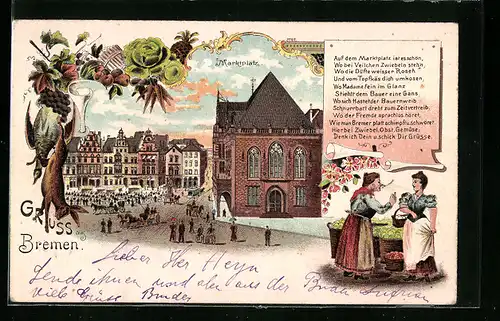 Marktplatz.
Auf dem Marktplatz ist es schön,
Wo bei Veilchen Zwiebeln stehn,
Wo die Düfte weisser Rosen
Und vom Topfkäs dich umkosen,
Wo Madame fein im Glanz
Stiehlt dem Bauer eine Gans
Wo sich Bauernweib
Schnurrbart dreht zum Zeitvertreib,
Wo der Fremde sprachlos höret,
Wie man Bremer platt schimpft u. schwöret!
Hier bei Zwiebel, Obst, Gemüse,
Denk ich Dein u. schick Dir Grüsse.
Gruss aus
Bremen.
Lieber Herr Heyn
Sende ihnen aus der
viele Grüsse